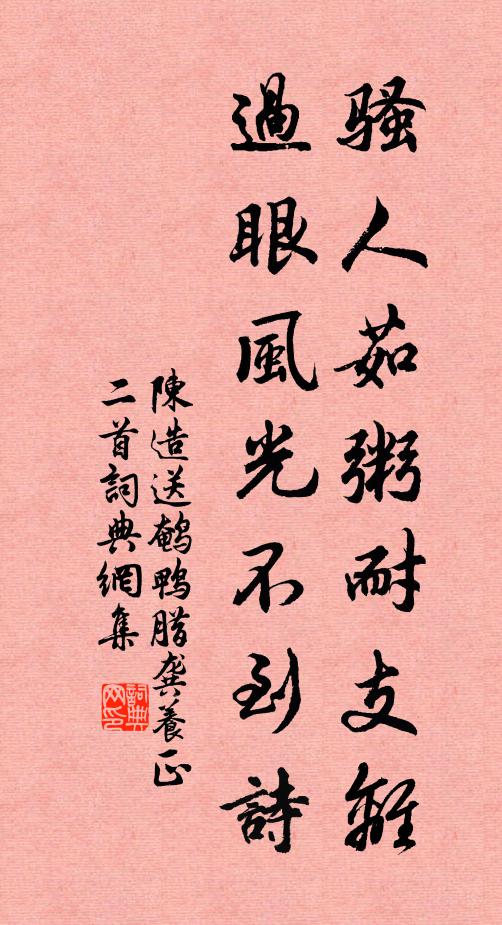 騷人茹粥耐支離
過眼風光不到詩
陳造送鵪鴨腊龔養正
二首詞典網集
詞典网印